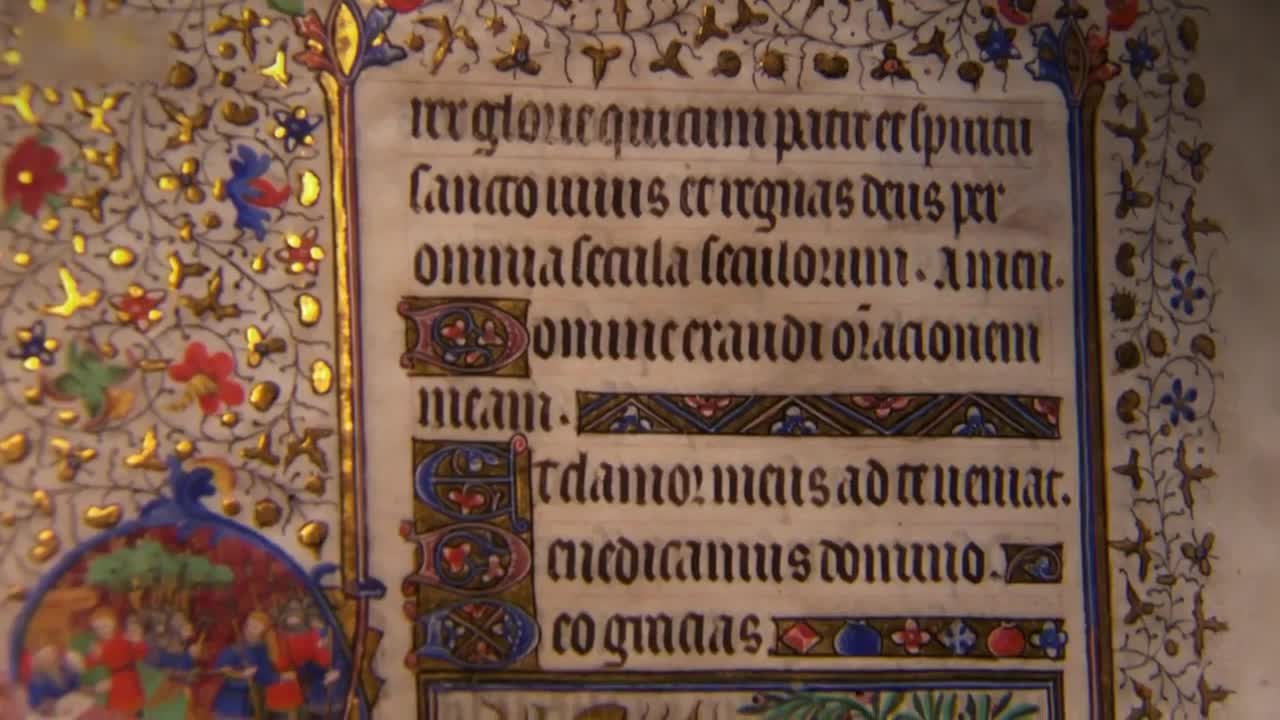 rex glorie qui cum patre et spiritu
sancto vivis et regnas deus per
omnia secula seculorum. Amen.
Domine exaudi orationem
meam.
Et clamor meus ad te veniat.
Benedicamus domino.
Deo gracias